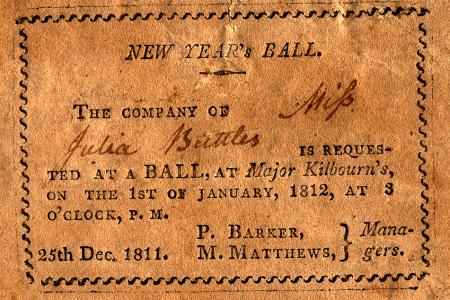 NEW YEAR's BALL.
THE COMPANY OF Miss
Julia Buttles IS REQUES-
TED AT A BALL, AT Major Kilbourn's,
ON THE 1ST OF JANUARY, 1812, AT 3
O'CLOCK, P. M.
P. BARKER, } Mana-
25th Dec. 1811. M. MATTHEWS, } gers.